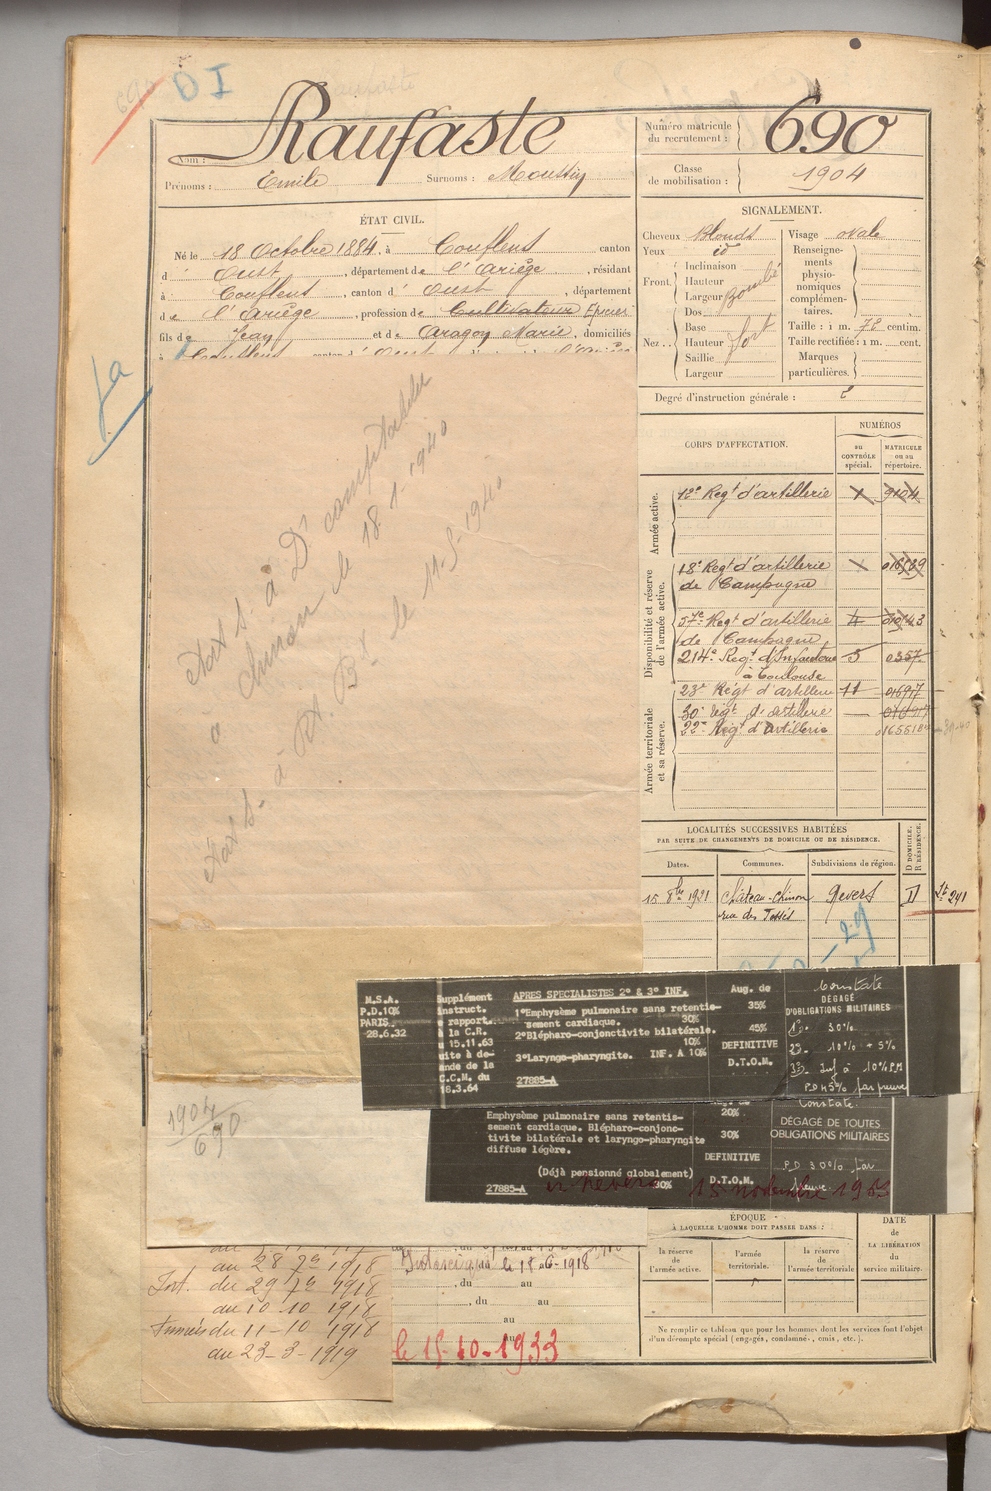 690 DI
Nom : Raufaste
Prénoms : Emile Surnoms : Moussiq
Numéro matricule du recrutement : 690
Classe de mobilisation : 1904
ÉTAT CIVIL.
Né le 18 Octobre 1884, à Couflens canton
d' Oust, département de l'Ariège, résidant
à Couflens, canton d' Oust, département
de l'Ariège, profession de Cultivateur Epicier
fils de Jean et de Aragon Marie, domiciliés
SIGNALEMENT.
Cheveux Blonds
Yeux id
Front. Inclinaison
Hauteur
Largeur Bombé
Nez.. Dos
Base
Hauteur fort
Saillie
Largeur
Visage ovale
Renseigne-
ments
physio-
nomiques
complémen-
taires.
Taille : 1 m. 72 centim.
Taille rectifiée : 1 m. cent.
Marques
particulières.
Degré d'instruction générale :
CORPS D'AFFECTATION.
NUMÉROS
au CONTRÔLE spécial.
MATRICULE ou au répertoire.
Armée active.
12e Regt d'artillerie 9104
Disponibilité et réserve de l'armée active.
18e Regt d'artillerie
de Campagne
57e Regt d'artillerie 4
de Campagne
214e Regt d'Infanterie 5 0357
à Toulouse
Armée territoriale et sa réserve.
23e Régt d'artillerie 11 01697
30e Régt d'artillerie
22e Régt d'Artillerie
LOCALITÉS SUCCESSIVES HABITÉES
PAR SUITE DE CHANGEMENTS DE DOMICILE OU DE RÉSIDENCE.
Dates. Communes. Subdivisions de région. D DOMICILE. R RÉSIDENCE.
15 8bre 1921 Château-Chinon Nevers D
rue des Fossés
Aff S. à Dt
à Chinon le 18 1 1940
Aff S. à Dt. Bx le 11-5-1940
M.S.A.
P.D.10%
PARIS
28.6.32
Supplément
instruct.
rapport
à la C.R.
u 15.11.63
uite à de-
ande de la
C.C.M. du
18.3.64
APRES SPECIALISTES 2° & 3° INF.
1°Emphysème pulmonaire sans retentis-
sement cardiaque. 30%
2°Blépharo-conjonctivite bilatérale.
10%
3°Laryngo-pharyngite. INF. A 10%
27885-A
Aug. de
35%
45%
DEFINITIVE
D.T.O.M.
Constate
DÉGAGÉ
D'OBLIGATIONS MILITAIRES
1°- 30%
2°- 10% + 5%
3°- Inf à 10%
PD 45% par preuve
Emphysème pulmonaire sans retentis-
sement cardiaque. Blépharo-conjonc-
tivite bilatérale et laryngo-pharyngite
diffuse légère.
(Déjà pensionné globalement)
27885-A 30%
20%
30%
DEFINITIVE
D.T.O.M.
Constate.
DÉGAGÉ DE TOUTES
OBLIGATIONS MILITAIRES
PD 30% par
preuve.
Nevers 15 novembre 1963
1904
690
au 28 7re 1918
Int. du 29 7re 1918
au 10-10 1918
Armées du 11-10 1918
au 23-3-1919
le 18-6-1918
, du au
, du au
au
au
le 15-10-1933
ÉPOQUE
À LAQUELLE L'HOMME DOIT PASSER DANS :
la réserve de l'armée active.
l'armée territoriale.
la réserve de l'armée territoriale
DATE
de
LA LIBÉRATION
du
service militaire.
Ne remplir ce tableau que pour les hommes dont les services font l'objet
d'un décompte spécial (engagés, condamnés, omis, etc.).